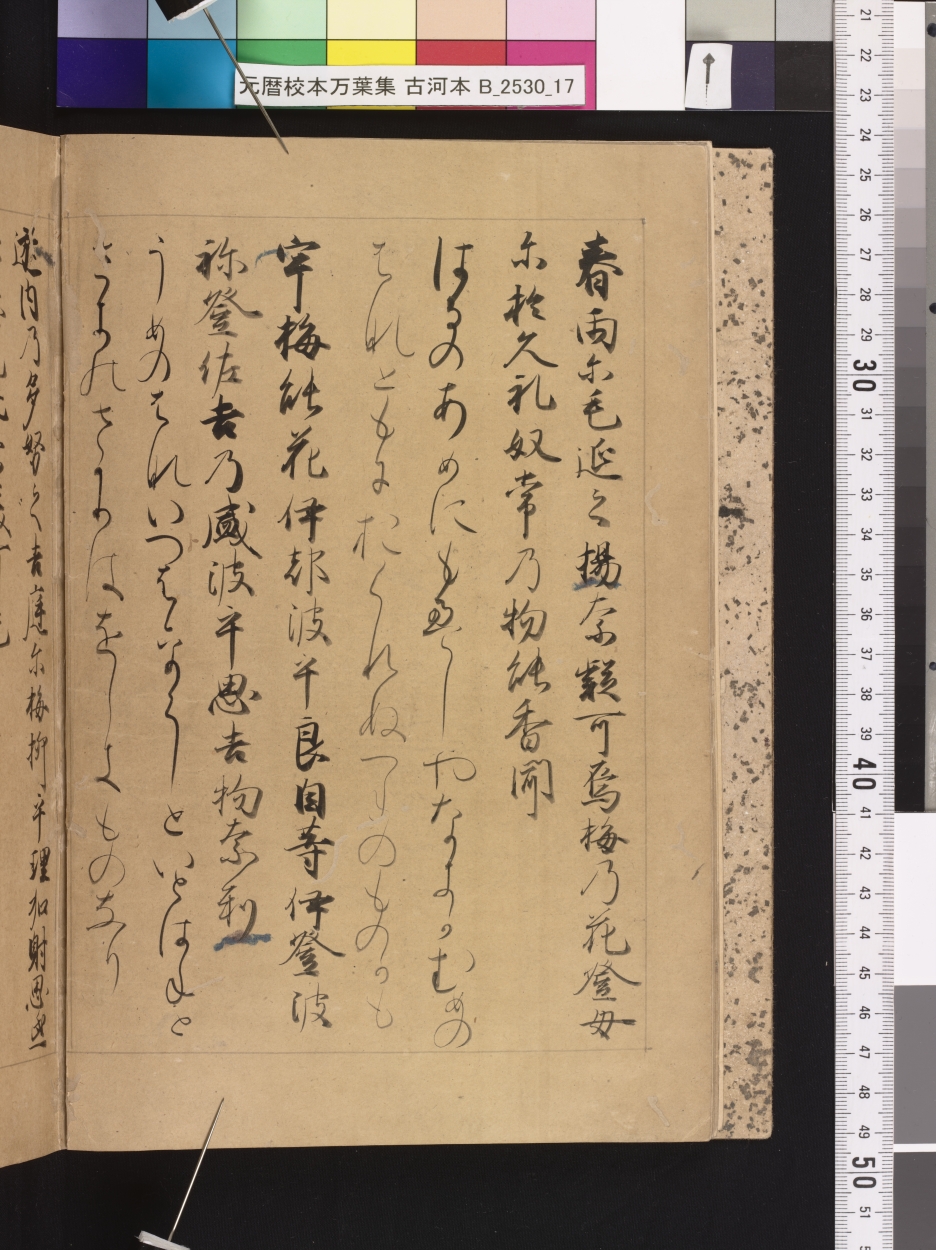 元暦校本万葉集 古河本 B_2530_17
春雨尓毛延之楊奈疑可烏梅乃花登母
尓於久礼奴常乃物能香聞
はるのあめにもえしやなきかむめの
はなともにおくれぬつねのものかも
宇梅能花伊都波乎良自等伊登波
祢登佐吉乃盛波乎思吉物奈利
うめのはないつは らしといとはねと
さきのさかりはをしきものなり
遊内乃多努之吉庭尓梅柳乎理加射思